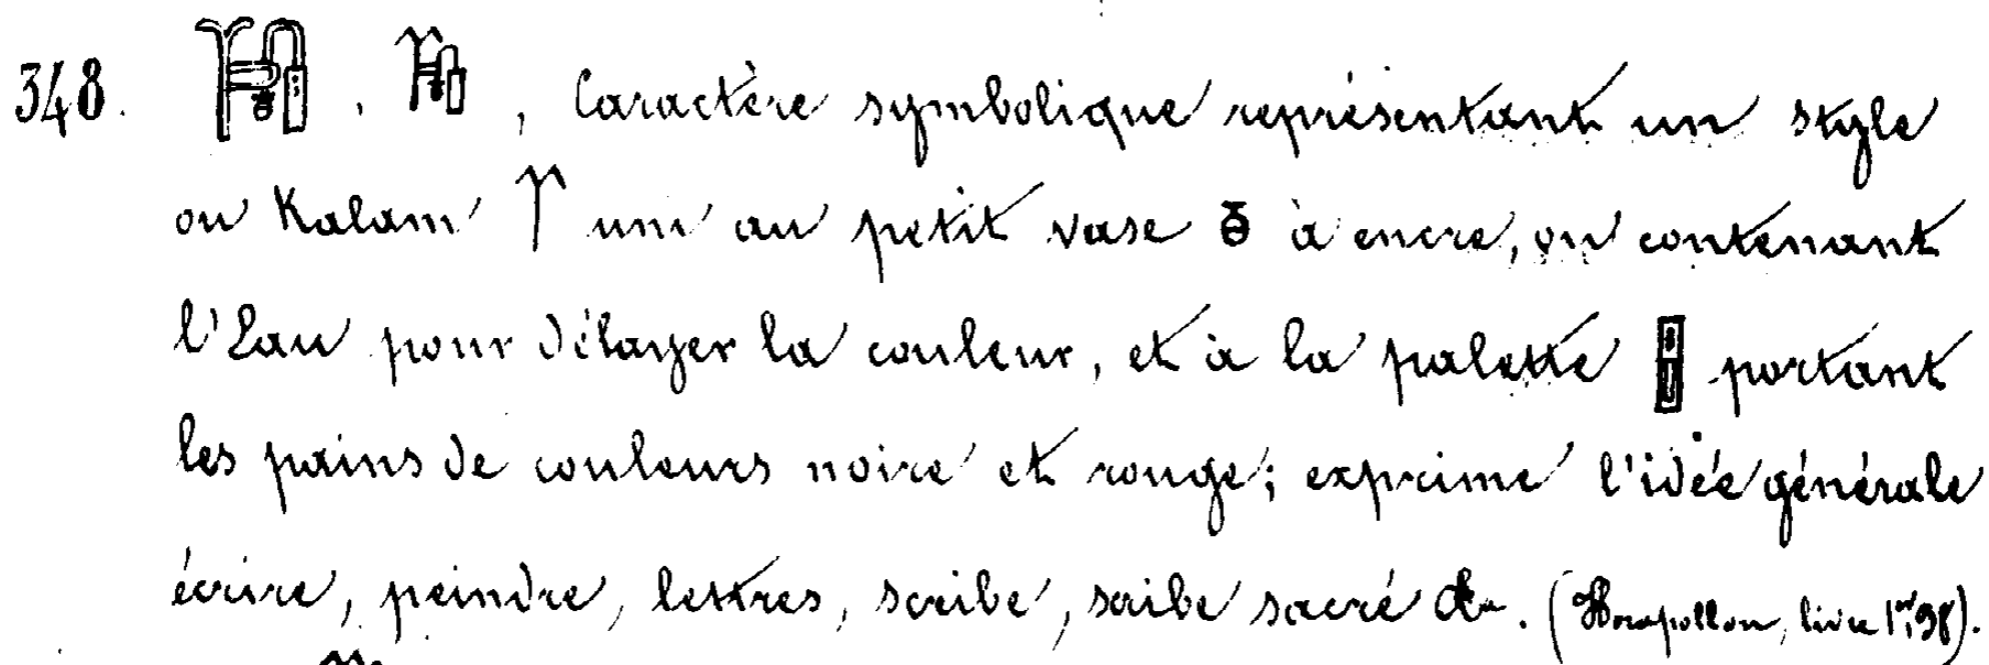 348. 𓏞, 𓏞, Caractère symbolique représentant un style
ou Kalam uni au petit vase à encre, ou contenant
l'Eau pour délayer la couleur, et à la palette portant
les pains de couleurs noire et rouge; exprime l'idée générale
écrire, peindre, lettres, scribe, scribe sacré &a. (Horapollon, livre 1er,